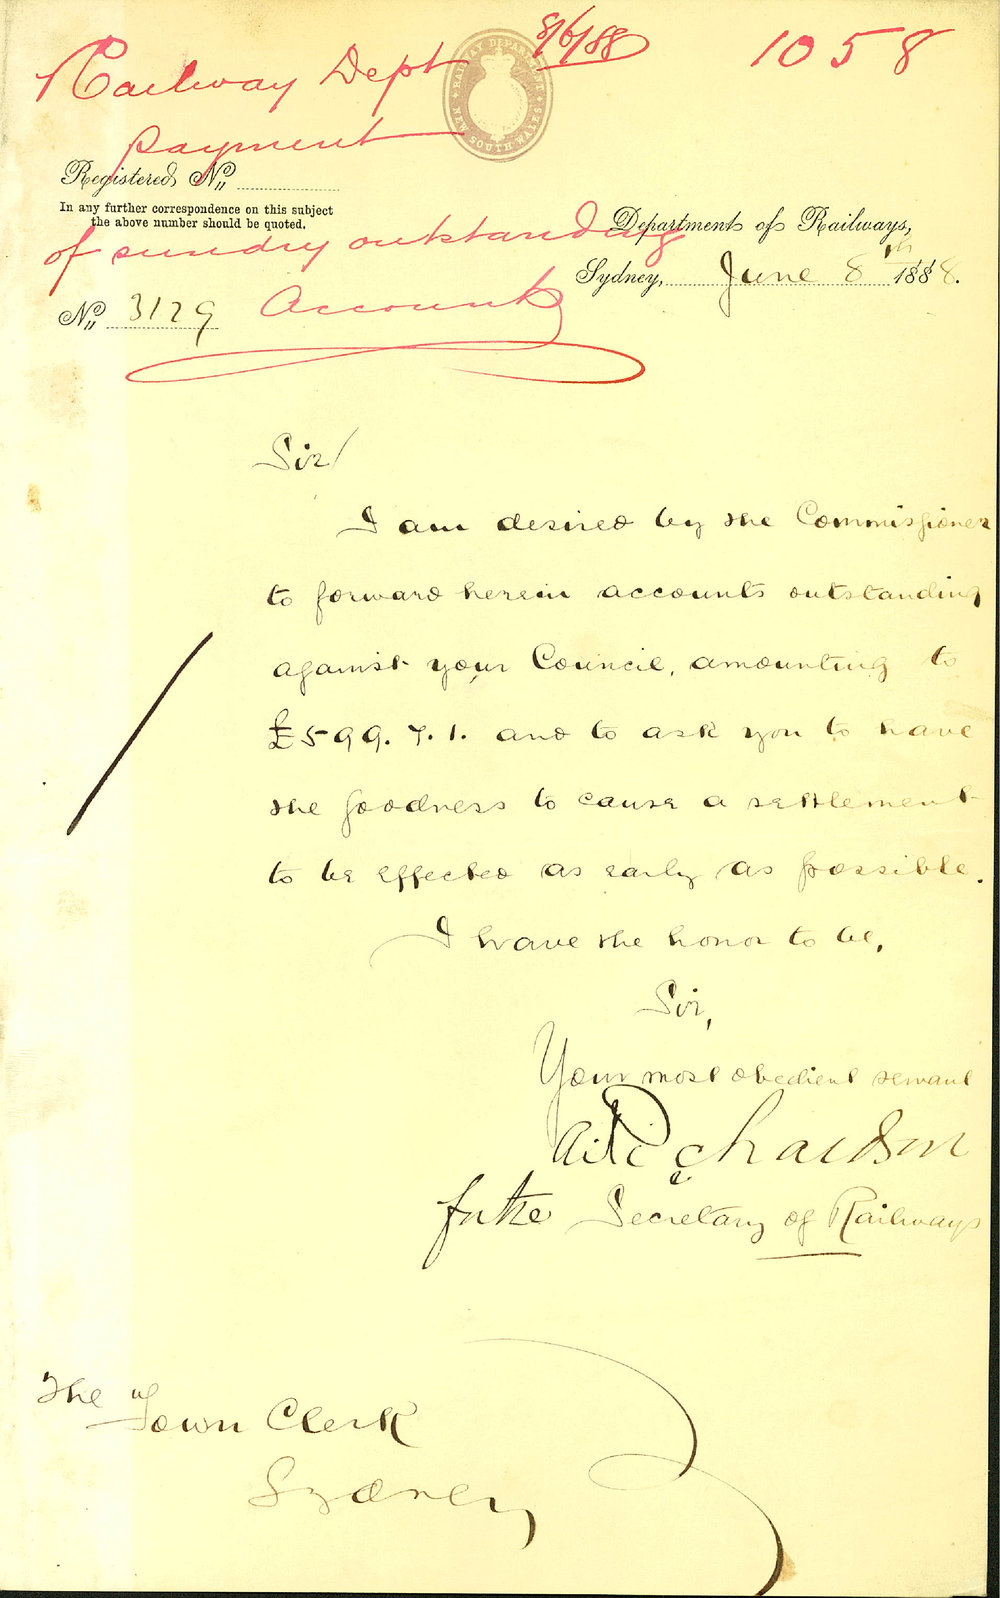 8/6/88
1058
Railway Dept
payment
of sundry outstanding
Accounts
RAILWAY DEPARTMENT
NEW SOUTH WALES
Registered No.
In any further correspondence on this subject
the above number should be quoted.
No. 3129
Department of Railways,
Sydney, June 8th 1888.
Sir/
I am desired by the Commissioner
to forward herein accounts outstanding
against your Council, amounting to
£599. 7. 1. and to ask you to have
the goodness to cause a settlement
to be effected as early as possible.
I have the honor to be,
Sir,
Your most obedient servant
Richardson
for the Secretary of Railways
The Town Clerk
Sydney